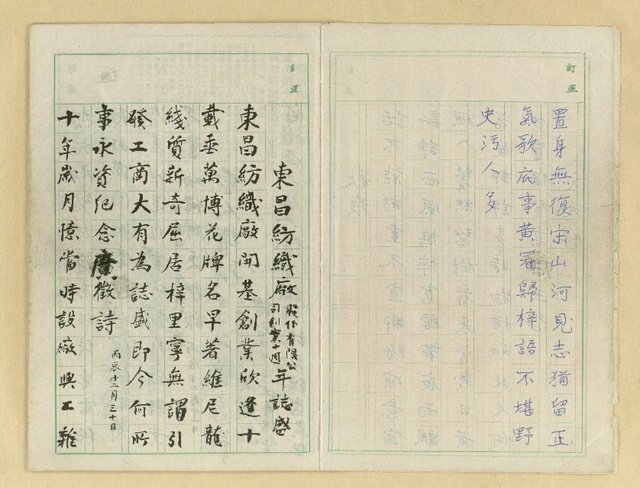 訂正
置身無復宋山河見志猶留正
氣歌底事黃冠歸梓語不堪野
史污人多
訂正
東昌紡織廠股份有限公司創業十週年誌盛
東昌紡織廠開基創業欣逢十
載垂萬博花牌名早著維尼龍
綫質新奇屈居梓里寧無謂引
發工商大有為誌盛即今何所
事永資紀念廣徵詩
丙辰十二月三十日
十年歲月憶當時設廠興工雜